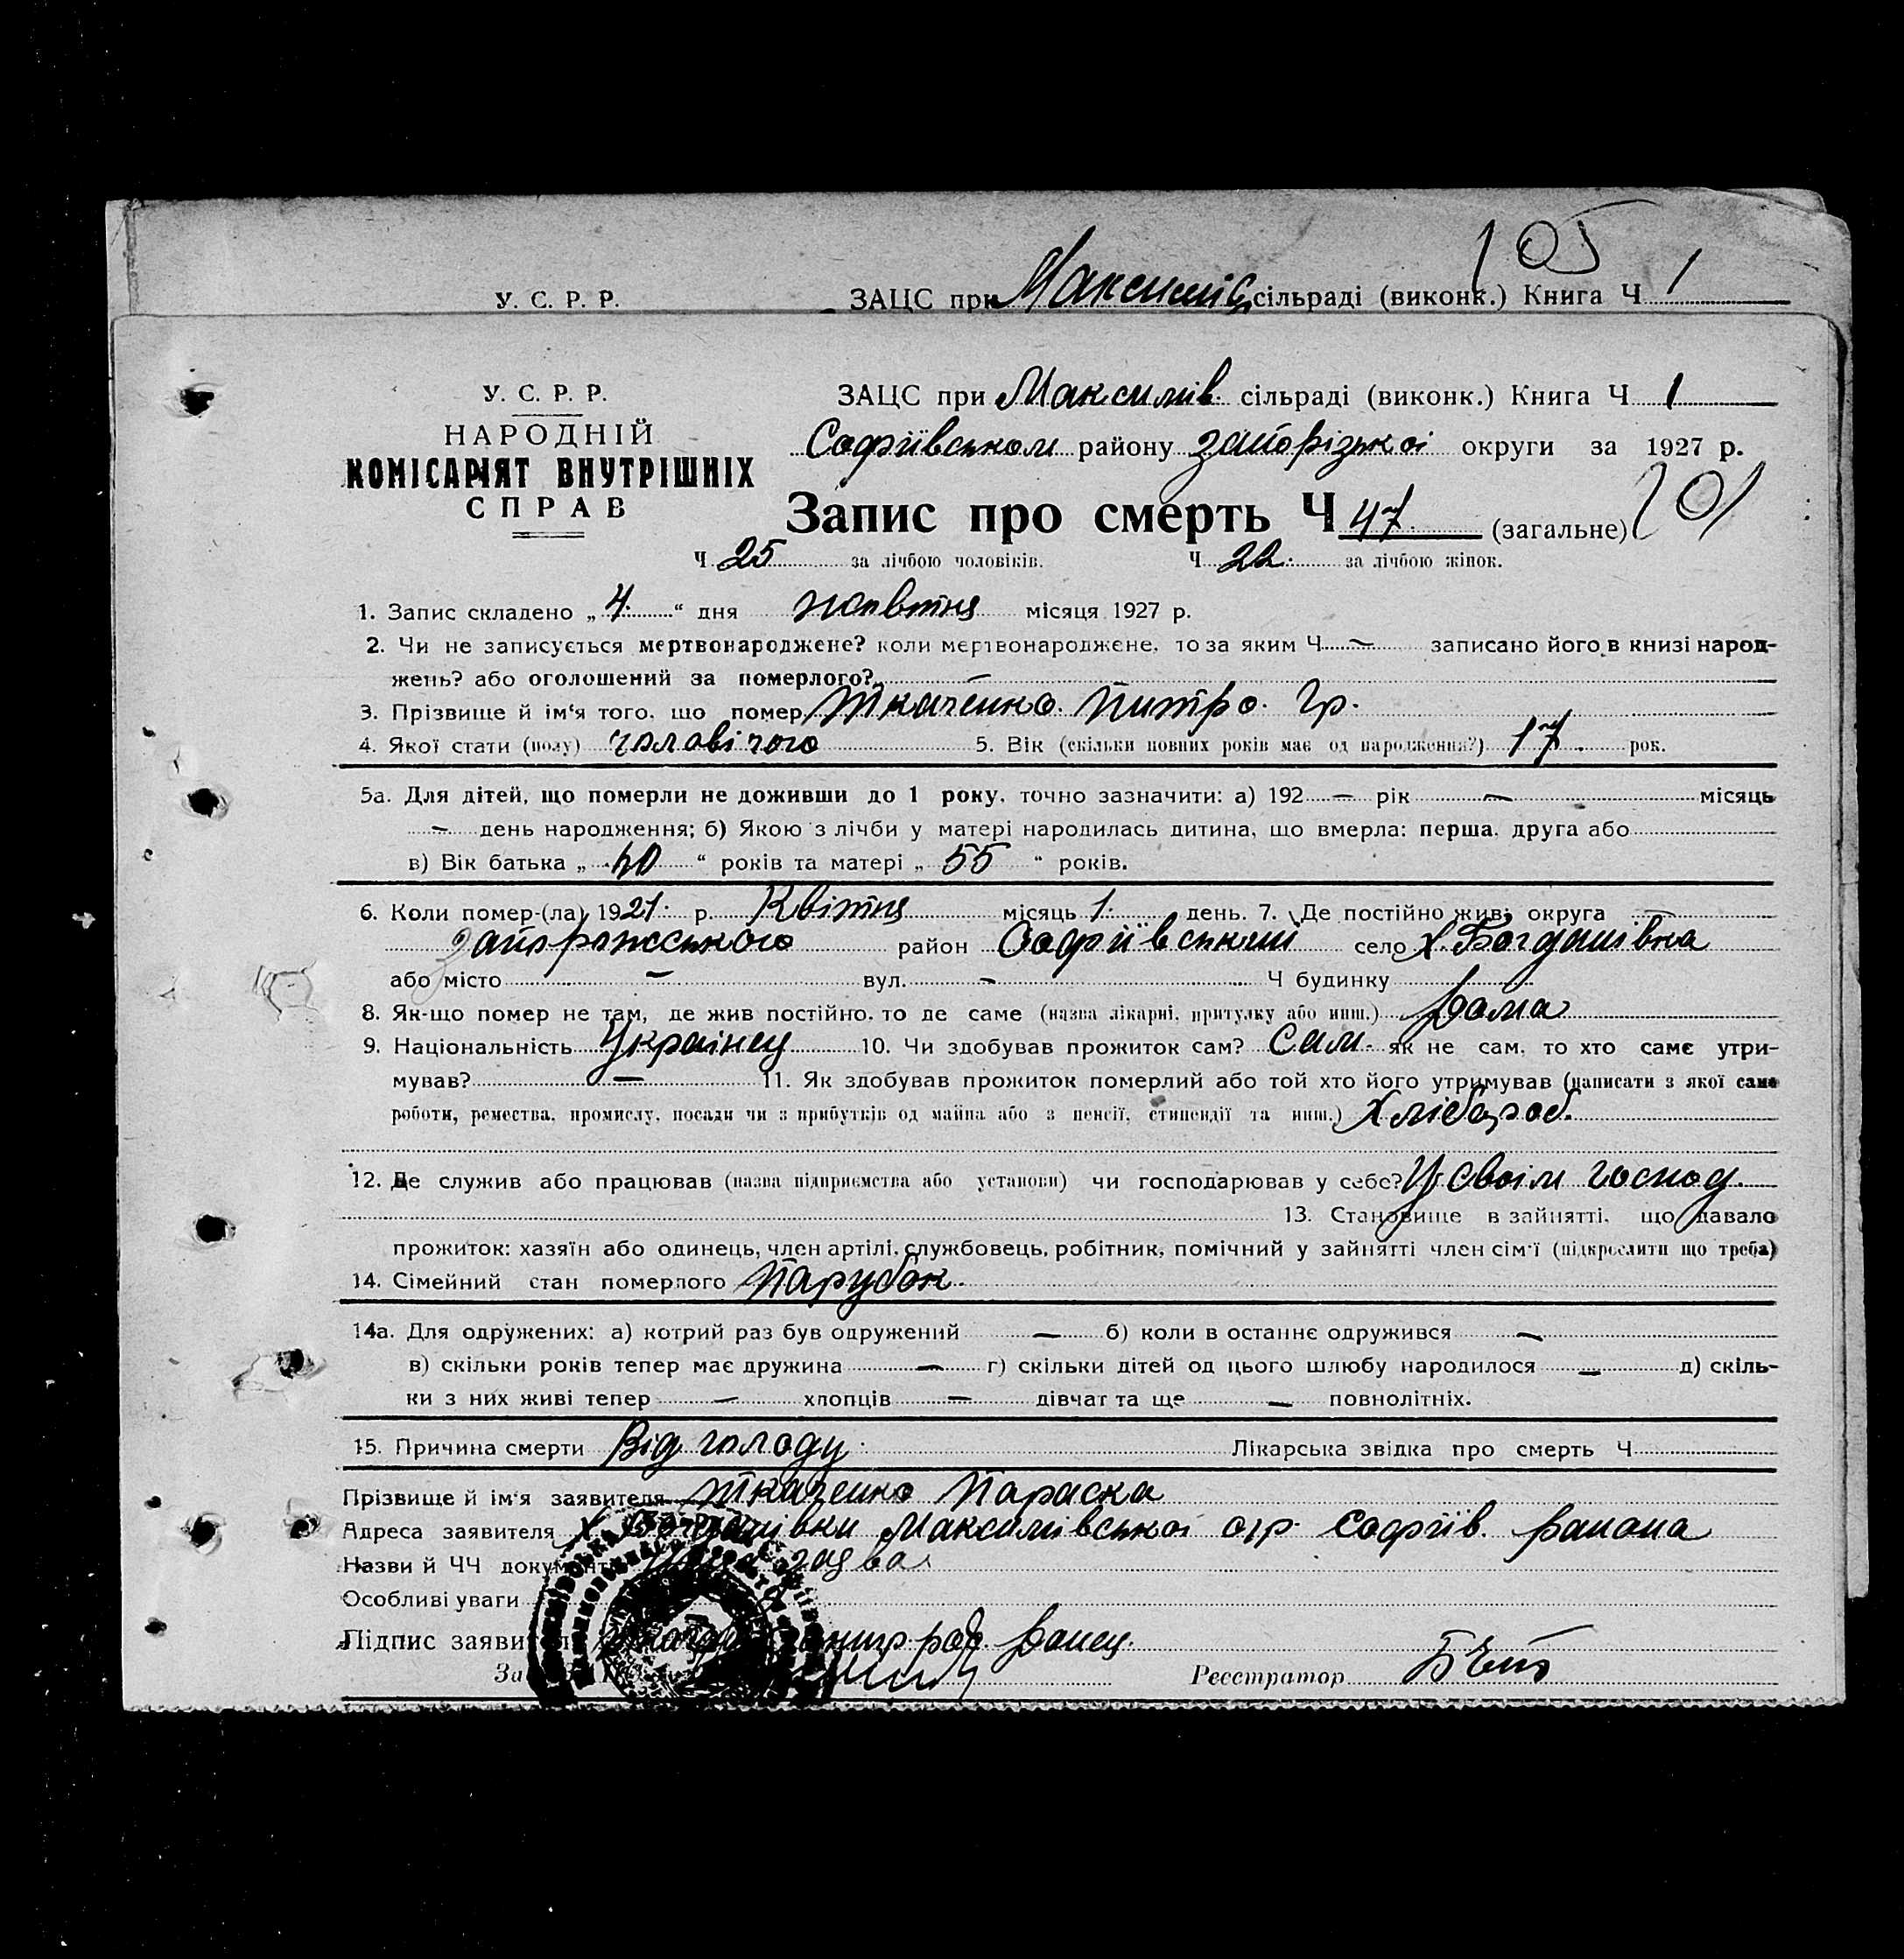 105
У. С. Р. Р. ЗАЦС при Максимів сільраді (виконк.) Книга Ч 1
У. С. Р. Р. ЗАЦС при Максимів. сільраді (виконк.) Книга Ч 1
НАРОДНІЙ Софіївськом району запорізької округи за 1927 р.
КОМІСАРІЯТ ВНУТРІШНІХ
СПРАВ
Запис про смерть Ч 47. (загальне) 101
Ч 25 за лічбою чоловіків. Ч 22. за лічбою жінок.
1. Запис складено „ 4. “ дня жовтня місяця 1927 р.
2. Чи не записується мертвонароджене? коли мертвонароджене, то за яким Ч — записано його в книзі народ-
жень? або оголошений за померлого?
3. Прізвище й ім'я того, що помер Ткаченко Питро. Гр.
4. Якої стати (полу) чоловічого 5. Вік (скільки повних років має од народження?) 17. рок.
5а. Для дітей, що померли не доживши до 1 року, точно зазначити: а) 192 — рік — місяць
— день народження; б) Якою з лічби у матері народилась дитина, що вмерла: перша, друга або
в) Вік батька „ “ років та матері „ 55 “ років.
6. Коли помер-(ла) 1921. р. Квітня місяць 1. день. 7. Де постійно жив: округа
Запорожського район Софіївський село х. Богданівка
або місто — вул. — Ч будинку
8. Як-що помер не там, де жив постійно, то де саме (назва лікарні, притулку або инш.) дома
9. Національність Українец 10. Чи здобував прожиток сам? Сам. як не сам, то хто саме утри-
мував? — 11. Як здобував прожиток померлий або той хто його утримував (написати з якої саме
роботи, ремества, промислу, посади чи з прибутків од майна або з пенсії, стипендії та инш.) Хлібороб.
12. Де служив або працював (назва підприємства або установи) чи господарював у себе? У своїм господ.
13. Становище в зайнятті, що давало
прожиток: хазяїн або одинець, член артілі, службовець, робітник, помічний у зайнятті член сім'ї (підкреслити що треба)
14. Сімейний стан померлого Парубок.
14а. Для одружених: а) котрий раз був одружений — б) коли в останнє одружився —
в) скільки років тепер має дружина — г) скільки дітей од цього шлюбу народилося — д) скіль-
ки з них живі тепер — хлопців — дівчат та ще — повнолітніх.
15. Причина смерти Від голоду. Лікарська звідка про смерть Ч
Прізвище й ім'я заявителя Ткаченко Параска
Адреса заявителя х. Богданівки Максимівської с/р. Софіїв. района
Назви й ЧЧ документ заява
Особливі уваги
Підпис заявителя
Реєстратор